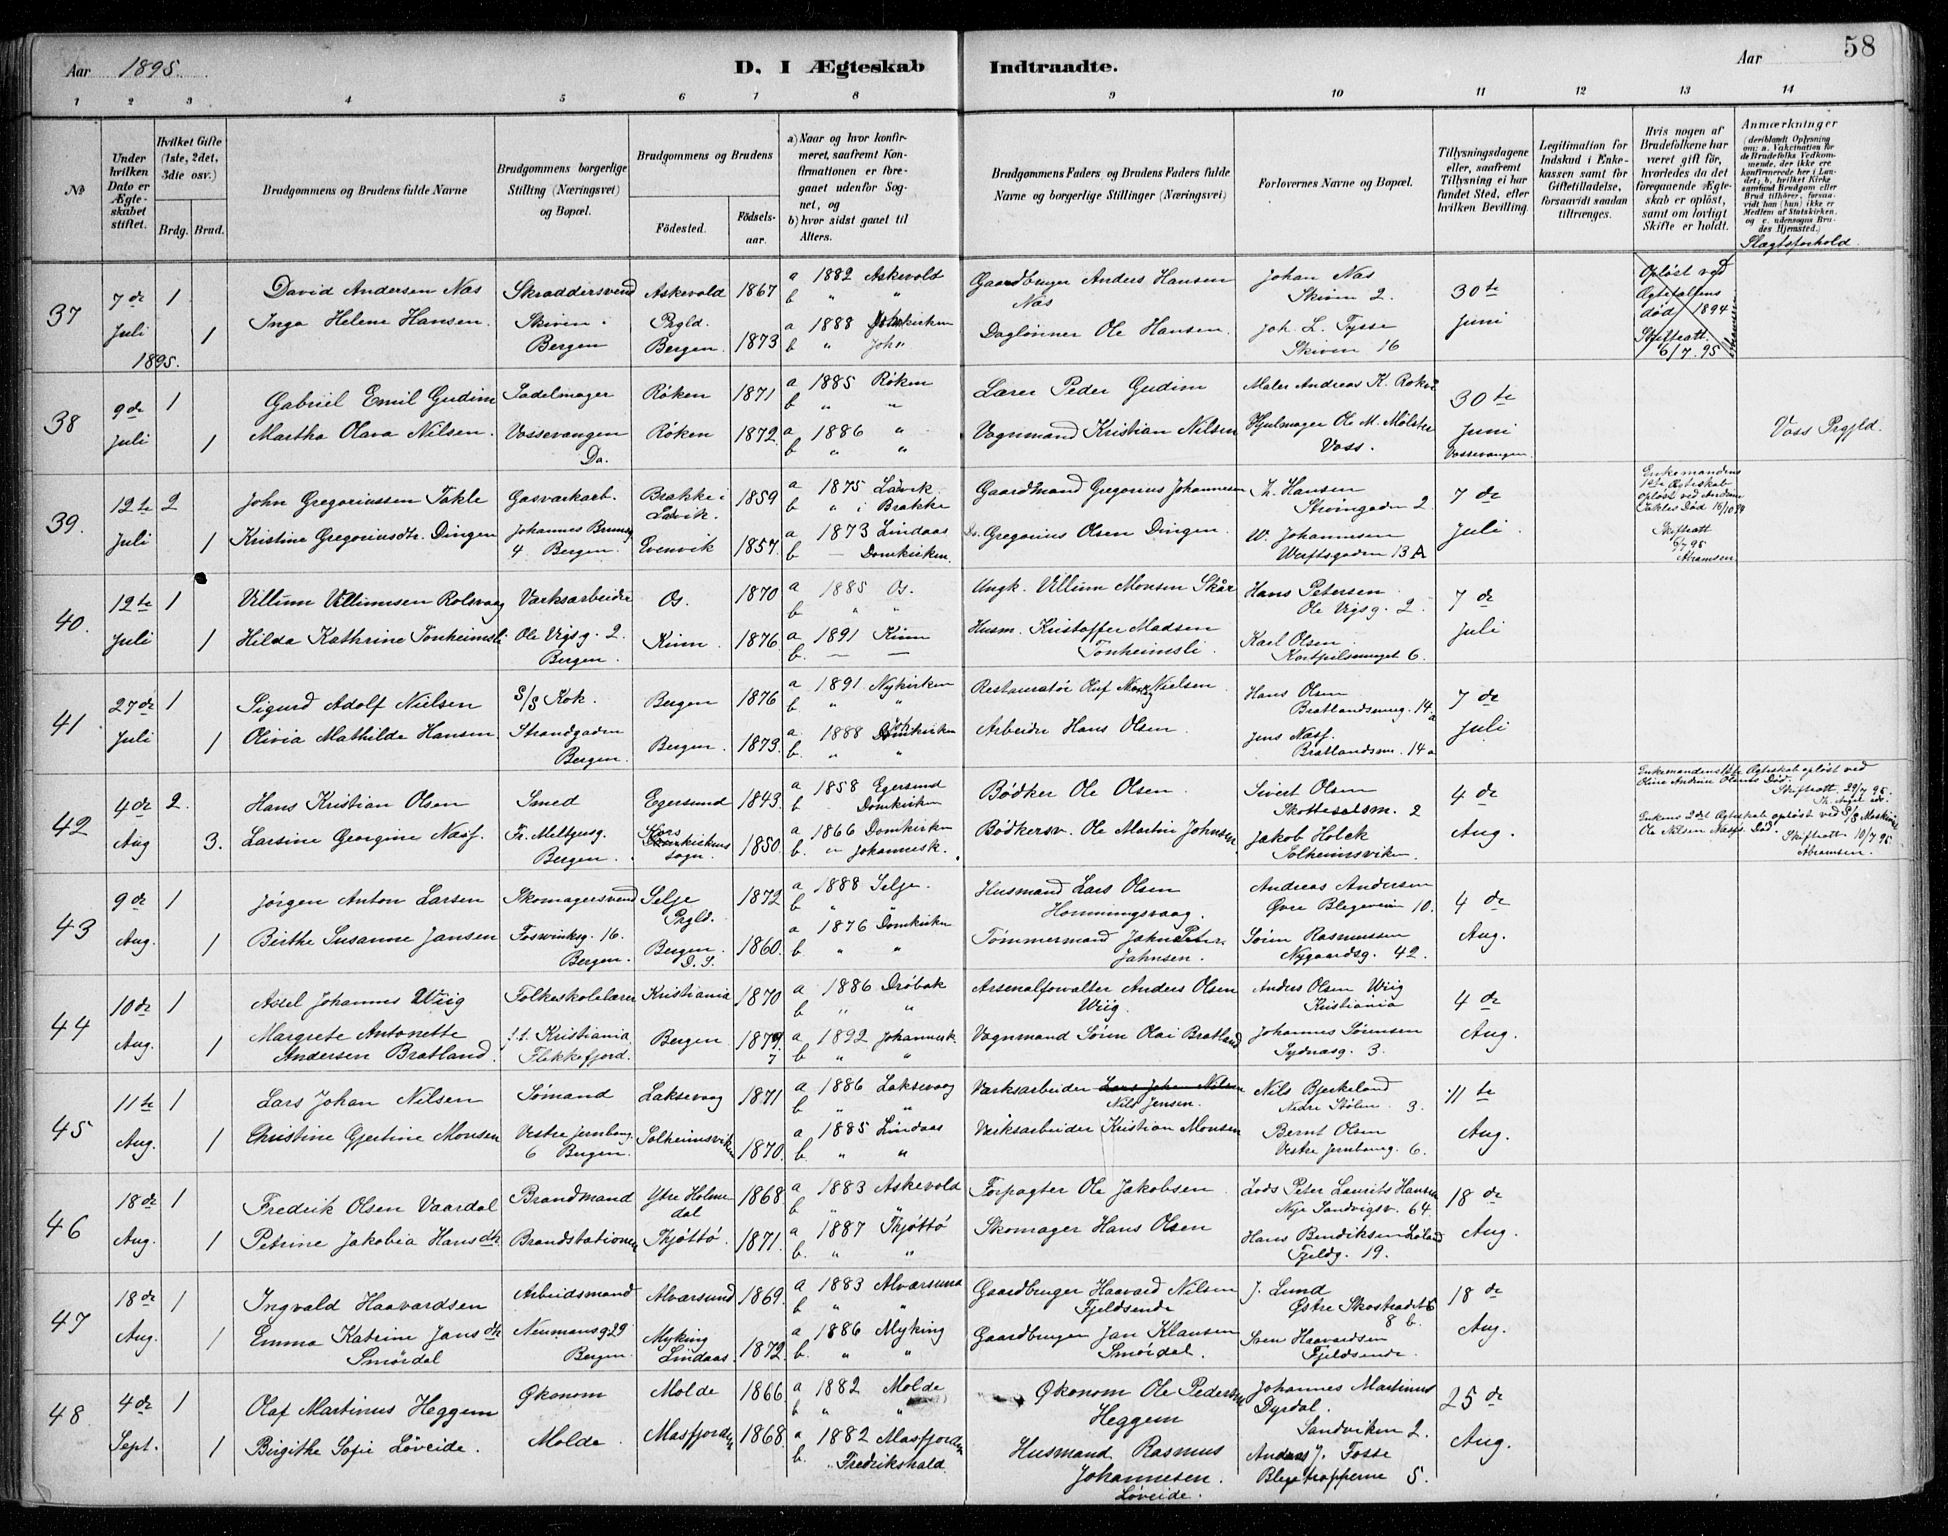 Aar 1895.
D. I Ægteskab Indtraadte.
Aar
58
1 2 3 4 5 6 7 8 9 10 11 12 13 14
No
Under hvilken Dato er Ægteskabet stiftet.
Hvilket Gifte (1ste, 2det, 3die osv.)
Brdg. Brud.
Brudgommens og Brudens fulde Navne
Brudgommens borgerlige Stilling (Næringsvei) og Bopæl.
Brudgommens og Brudens
Födested.
Födselsaar.
a) Naar og hvor konfirmeret, saafremt Konfirmationen er foregaaet udenfor Sognet, og
b) hvor sidst gaaet til Alters.
Brudgommens Faders, og Brudens Faders fulde Navne og borgerlige Stillinger (Næringsvei)
Forlovernes Navne og Bopæl.
Tillysningsdagene eller, saafremt Tillysning ei har fundet Sted, efter hvilken Bevilling.
Legitimation for Indskud i Enkekassen samt for Giftetilladelse, forsaavidt saadan tiltrænges.
Hvis nogen af Brudefolkene har været gift för, hvorledes da det foregaaende Ægteskab er oplöst, samt om lovligt Skifte er holdt.
Anmærkninger (deriblandt Oplysning om: a. Vakcination for de Brudefolks Vedkommende, der ikke ere konfirmerede her i Landet; b, hvilket Kirkesamfund Brudgom eller Brud tilhörer, forsaavidt han (hun) ikke er Medlem af Statskirken, og c. udensogns Brudes Hjemsted.)
Slægtsforhold.
37
7de Juli 1895.
1
1
David Andersen Næs
Inga Helene Hansen.
Skræddersvend
Skiven i
Bergen
Askevold
Prgld.
Bergen.
1867
1873
a 1882 Askevold
b " "
a 1888 Domkirken
b " Joh.
Gaardbruger Anders Hansen
Næs
Daglönner Ole Hansen.
Johan Næs
Skiven 2.
Joh. L. Tysse
Skiven 16
30te
Juni
Oplöst ved
Ægtefællens
död 1894
Skifteatt.
6/7. 95
38
9de Juli
1
1
Gabriel Emil Gudim
Martha Olava Nilsen.
Sadelmager
Vossevangen
Do.
Røken
Røken
1871
1872.
a 1885 Røken
b " "
a 1886 "
b " "
Lærer Peder Gudim
Vognmand Kristian Nilsen
Maler Andreas K. Rokne
Hjulmager Ole M. Mölster
Voss.
30te
Juni
Vossevangen
Voss Prgjld.
39.
12te Juli
2
1
John Gregoriussen Takle
Kristine Gregoriusdtr. Dingen
Gasværkarb.
Johannes Brunsg
4. Bergen.
Brække i
Ladvik.
Evenvik
1859
1857.
a 1875 Ladvik.
b " i Brække
a 1873 Lindaas
b — Domkirken.
Gaardmand Gregorius Johannesen
Do. Gregorius Olsen Dingen.
Th. Hansen
Steingaden 2
W. Johannesen
Werftsgaden 13 A
7de
Juli
Enkemandens
1ste Ægteskab
oplöst ved
Takles Död 16/10 94
Skifteatt
6/7 95
Abramsen
40.
12te Juli
1
1
Villum Villumsen Rolsvaag
Hilda Kathrine Tonheimsli
Værksarbeider
Ole Vigsg. 2.
Bergen.
Os.
Kinn.
1870
1876.
a 1885 Os.
b " "
a 1891 Kinn
b. — —
Ungk. Villum Monsen Skår
Husm. Kristoffer Madsen
Tonheimsli.
Hans Petersen
Ole Vigsg. 2.
Karl Olsen
6.
7de
Juli
41
27de Juli
1
1
Sigurd Adolf Nielsen
Olivia Mathilde Hansen
S/S Kok.
Strandgaden
Bergen.
Bergen
Bergen.
1876
1873.
a 1891 Nykirken
b. " "
a. 1888 Domkirken
b. " "
Restauratör Oluf Nielsen
Arbeider Hans Olsen.
Hans Olsen
Bratlandsmug. 14a
Jens Næss.
Bratlandsm. 14a
7de
Juli
42
4de Aug
2.
3.
Hans Kristian Olsen
Larsine Georgine Næss.
Smed
Fr. Meltzersg.
Bergen.
Egersund
Kors
Domkirkens
sogn.
1843.
1850.
a 1858 Egersund
b Domkirken
a. 1866 Domkirken
b. " Johannesk.
Bödker Ole Olsen.
Bödkersv. Ole Martin Johnsen
Sivert Olsen
Skottesalsm. 2
Jakob Holck
Solheimsviken
4de
Aug.
Enkemandens 1ste Ægteskab oplöst ved
Oline Andrine Olsens Död.
Skifteatt. 29/7 95.
Enkens 2det Ægteskab oplöst ved S/S Maskinist
Ole Nilsen Næss's Död. Skifteatt 10/7 95.
Abramsen.
43
9de Aug.
1
1
Jørgen Anton Larsen
Birthe Susanne Jansen
Skomagersvend
Fosswinklsg. 16.
Bergen.
Selje
Prgld.
Bergen.
D. S.
1872
1860.
a 1888 Selje.
b " "
a 1876 Domkirken
b " "
Husmand Lars Olsen
Honningsvaag.
Tømmermand Jahn Peter
Jahnsen.
Andreas Andersen
Øvre Blegeveien 10.
Sören Rasmussen
Nygaardsg. 42.
4de
Aug.
44
10de Aug.
1
1
Axel Johannes Wiig
Margrete Antonette
Andersen Bratland.
Folkeskolelærer
f.t. Kristiania
Flekkefjord.
Kristiania
Bergen
1870
1877
a 1886 Dröbak
b " "
a 1892 Johannesk.
b " "
Arsenalforvalter Anders Olsen
Wiig.
Vognmand Sören Olai Bratland
Anders Olsen Wiig
Kristiania
Johannes Sørensen
Sydnæsg. 3.
4de
Aug.
45
11te Aug.
1
1
Lars Johan Nilsen
Christine Gjertine Monsen
Sømand
Vestre Jernbaneg.
6 Bergen.
Laksevaag
Solheimsviken
1871
1870.
a 1886 Laksevaag
b " "
a 1885 Lindaas
b. " "
Værksarbeider Lars Johan Nilsen
Nils Jensen.
Værksarbeider Kristian Monsen
Nils Bjerkeland
Nedre Stølen 3.
Bernt Olsen
Vestre Jernbaneg. 6.
11te
Aug.
46
18de Aug.
1
1
Fredrik Olsen Vaardal
Petrine Jakobia Hansdtr.
Brandmand
Brandstationen
Ytre Holmedal
Thjøttø.
1868
1871.
a 1883 Askevold
b. "
a 1887 Thjøttø
b. " "
Forpagter Ole Jakobsen
Skomager Hans Olsen
Lods Peter Laurits Hansen
Nye Sandvigsv. 64.
Hans Bendiksen Løland
Fjeldg. 19.
18de
Aug.
47
18de Aug.
1
1
Ingvald Haavardsen
Emma Katrine Jansdtr.
Smördal
Arbeidsmand
Neumansg 29
Bergen.
Alværsund
Myking
Lindaas.
1869.
1872.
a 1883 Alværsund
b " "
a 1886 Myking
b. " "
Gaardbruger Haavard Nilsen
Fjeldsende
Gaardbruger Jan Klausen
Smördal.
J. Lund
Østre Skostrædet
8 b.
Sven Haavardsen
Fjeldsende.
18de
Aug.
48
4de Sept.
1
1
Olaf Martinus Heggem
Birgithe Sofie Löveide.
Økonom
Molde
Molde
Masfjorden
1866
1868.
a 1882 Molde
b " "
a 1882 Masfjorden
b. " Fredrikshald.
Økonom Ole Pedersen
Heggem
Husmand Rasmus
Johannesen.
Løveide.
Johannes Martinus
Dyrdal.
Sandviken 2.
Andreas J. Fosse
Blegetrapperne 5.
25de
Aug.